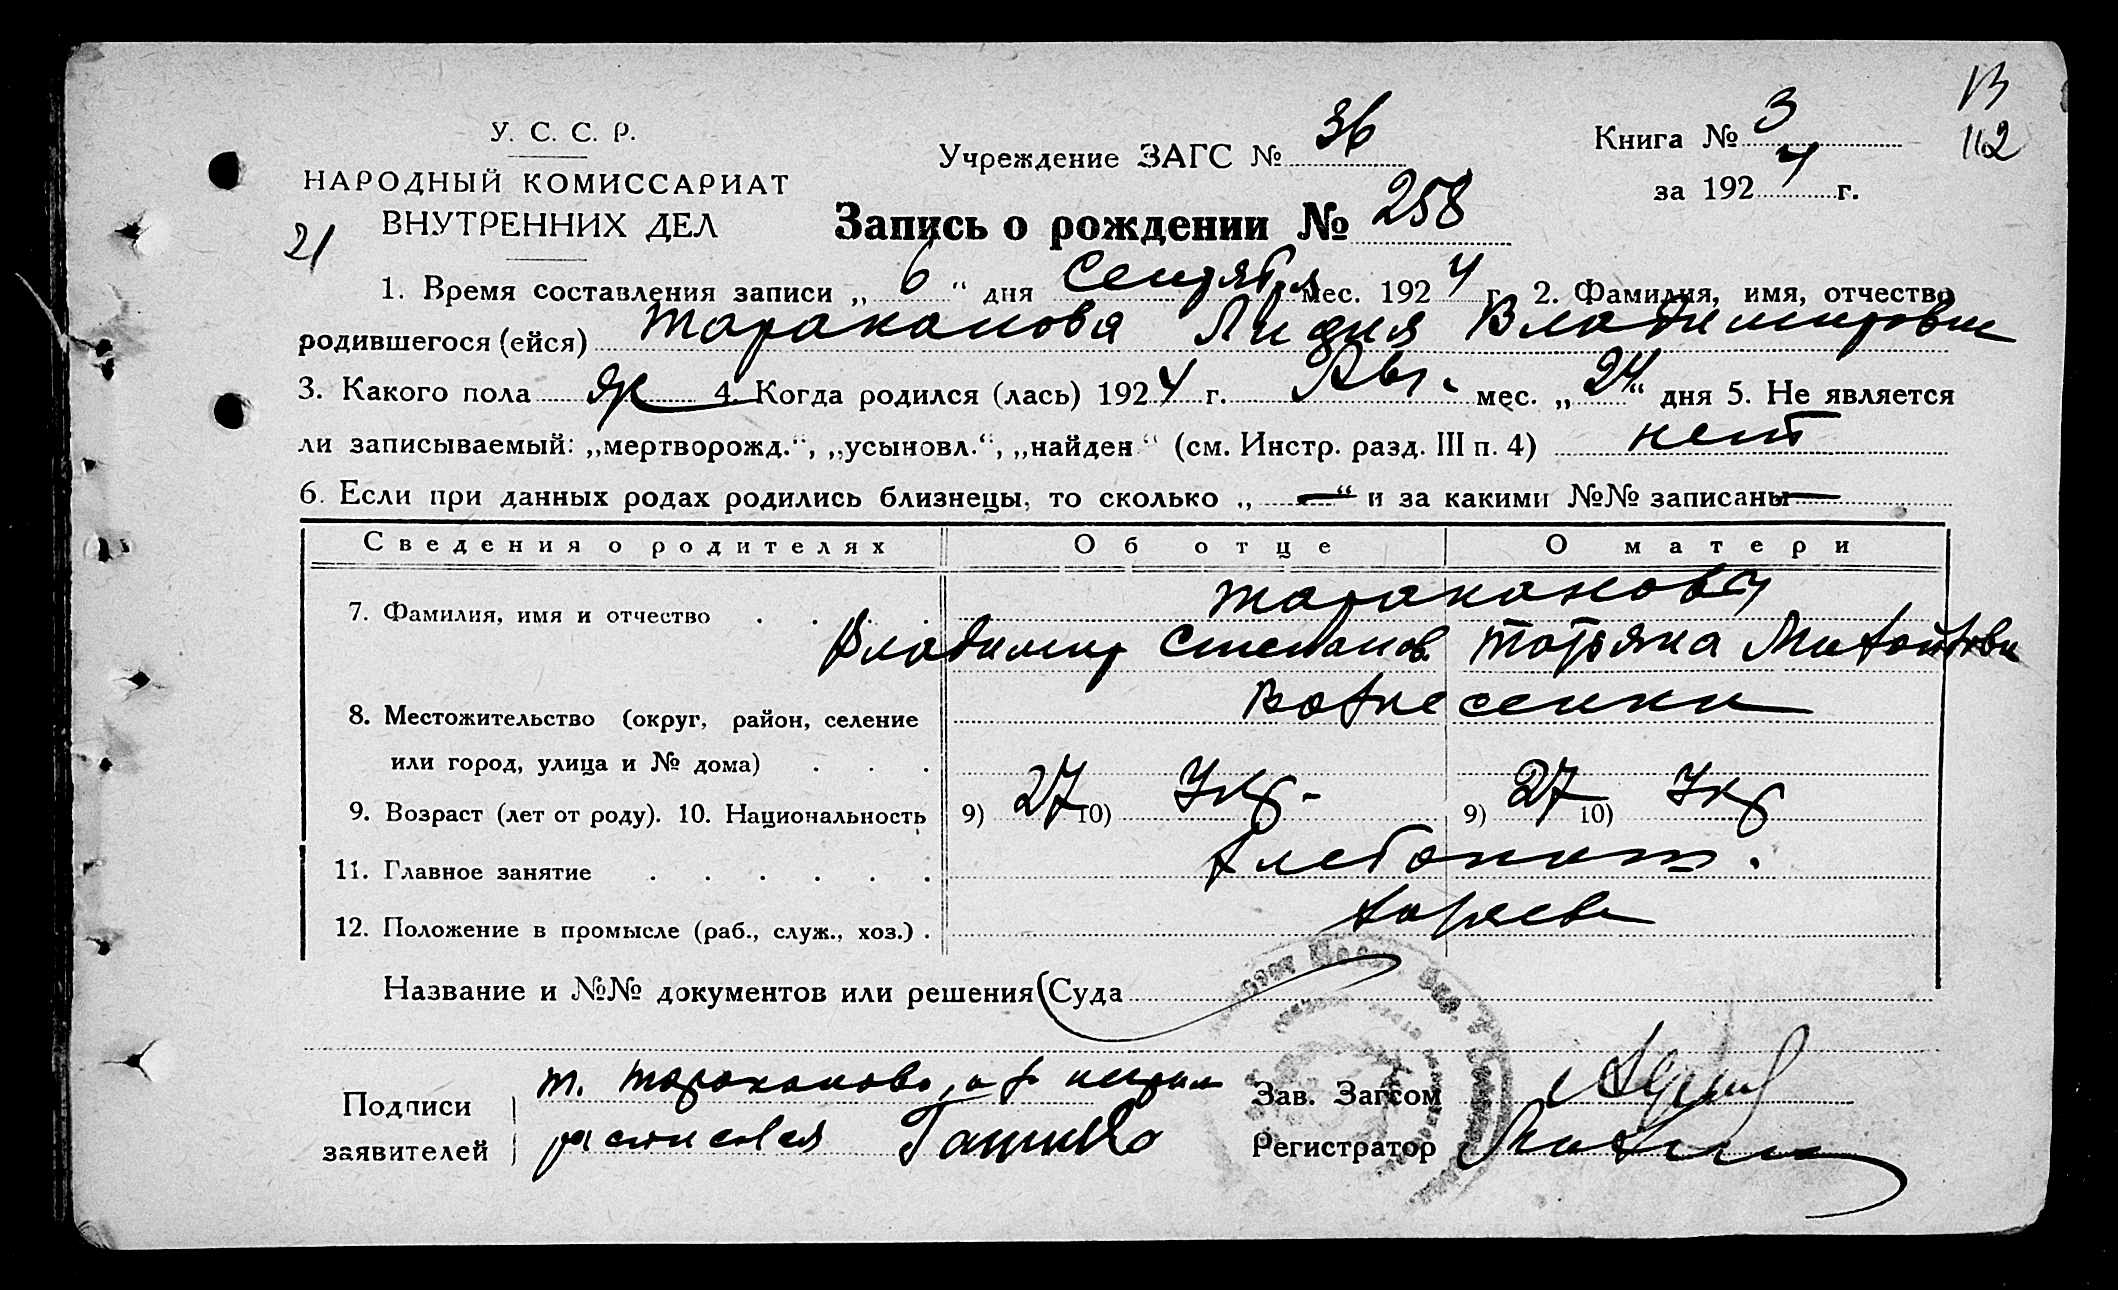 13
У. С. С. Р.
Учреждение ЗАГС № 36
Книга № 3
112
НАРОДНЫЙ КОМИССАРИАТ
за 1924 г.
ВНУТРЕННИХ ДЕЛ
21
Запись о рождении № 258
1. Время составления записи „6" дня Сентября мес. 1924 г. 2. Фамилия, имя, отчество
родившегося (ейся) Тараканова Лидия Владимировн
3. Какого пола ж 4. Когда родился (лась) 1924 г. Авг. мес. „24" дня 5. Не является
ли записываемый: „мертворожд.", „усыновл.", „найден" (см. Инстр. разд. III п. 4) нет
6. Если при данных родах родились близнецы, то сколько „—" и за какими №№ записаны —
Сведения о родителях Об отце О матери
7. Фамилия, имя и отчество . . . . Таракановы
Владимир Степанов. Татьяна
8. Местожительство (округ, район, селение Вознесенки
или город, улица и № дома) . . .
9. Возраст (лет от роду). 10. Национальность 9) 27 10) Укр- 9) 27 10) Укр
11. Главное занятие . . . . . . Хлебопаш.
12. Положение в промысле (раб., служ., хоз.) . хозяева
Название и №№ документов или решения Суда
Подписи Т. Тараканова, а за неграм
заявителей расписался
Зав. Загсом
Регистратор